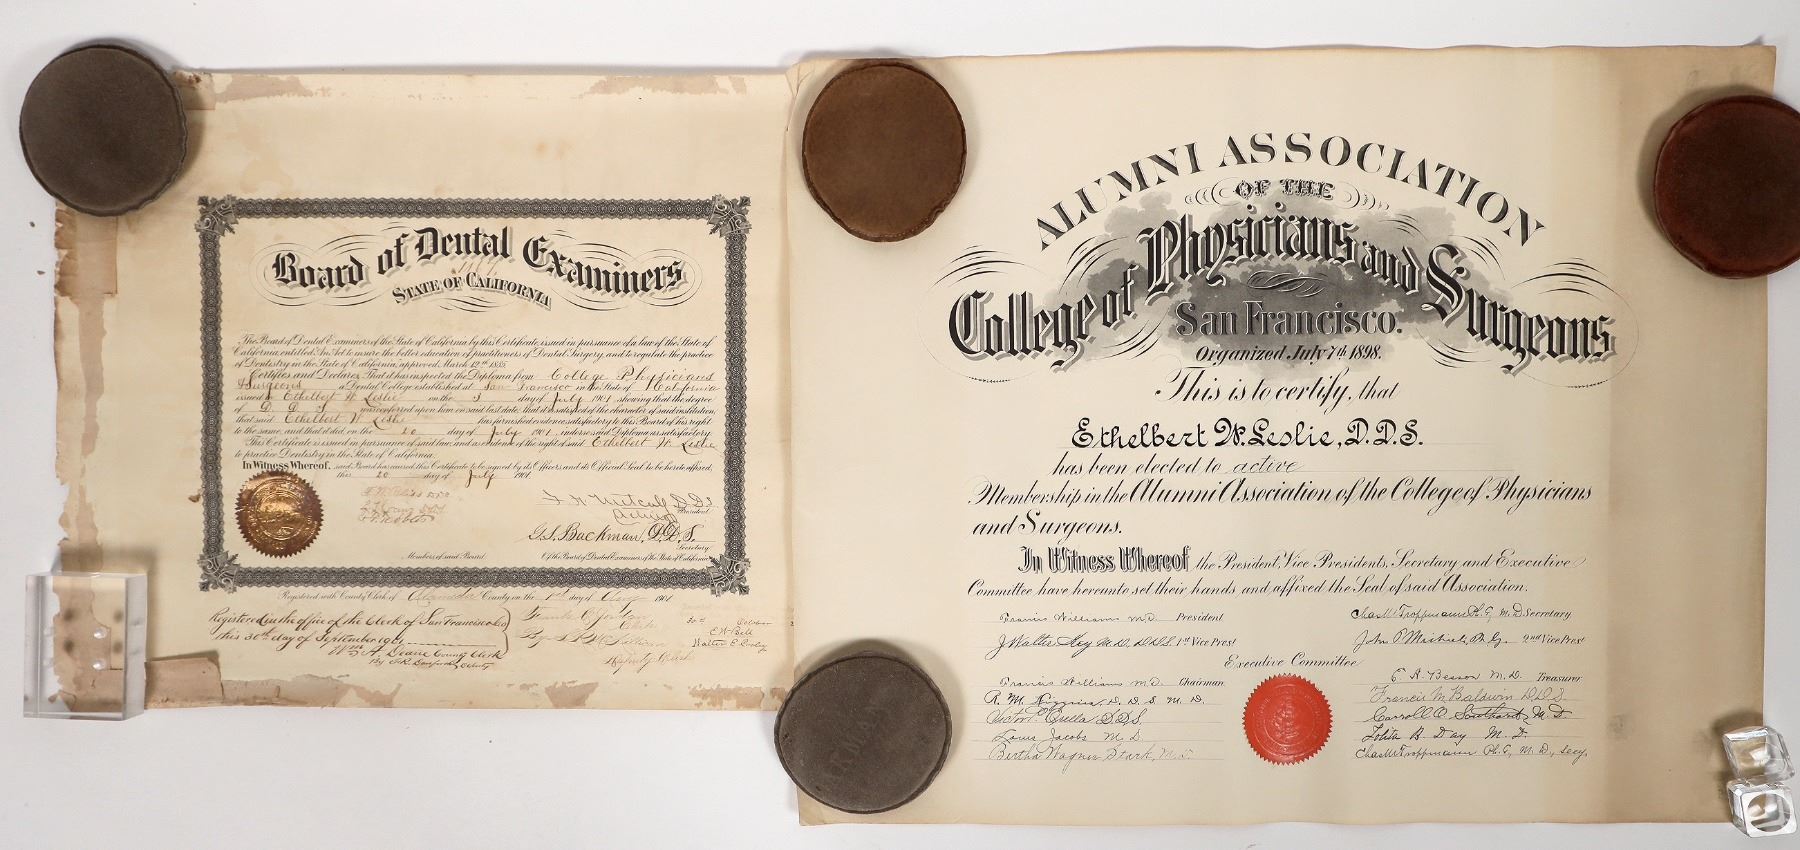 Board of Dental Examiners
State of California
The Board of Dental Examiners of the State of California by this Certificate, issued in pursuance of a law of the State of
California, entitled: An Act to insure the better education of practitioners of Dental Surgery, and to regulate the practice
of Dentistry in the State of California, approved March 12th 1885.
Certifies and Declares: That it has inspected the Diploma from College Physicians
& Surgeons a Dental College established at San Francisco in the State of California
issued to Ethelbert W. Leslie on the 3 day of July 1901 showing that the degree
of D.D.S. was conferred upon him on said last date, that it is satisfied of the character of said institution,
that said Ethelbert W Leslie has furnished evidence satisfactory to this Board of his right
to the same, and that it did on the 20 day of July 1901, indorse said Diploma as satisfactory.
This Certificate is issued in pursuance of said law, and is evidence of the right of said Ethelbert W. Leslie
to practice Dentistry in the State of California.
In Witness Whereof, said Board has caused this Certificate to be signed by its Officers, and its Official Seal to be hereto affixed,
this 20 day of July 1901.
F. H. Metcalf D.D.S.
President
G.S. Backman, D.D.S.
Secretary
Members of said Board Of the Board of Dental Examiners of the State of California
Registered with County Clerk of Alameda County on the 1st day of Aug 1901
Registered in the office of the Clerk of San Francisco Co
this 30th day of September 1901
Wm A. Deane County Clerk
Deputy Clerk
E W Bell
ALUMNI ASSOCIATION
OF THE
College of Physicians and Surgeons
San Francisco.
Organized July 7th 1898.
This is to certify, that
Ethelbert W. Leslie, D.D.S.
has been elected to active
Membership in the Alumni Association of the College of Physicians
and Surgeons.
In Witness Whereof the President, Vice Presidents, Secretary and Executive
Committee have hereunto set their hands and affixed the Seal of said Association.
Francis Williams M.D. President
Chas M Troppmann Ph.G, M.D Secretary
J Walter Key M.D, D.D.S. 1st Vice Prest
John P Michiels Ph.G. 2nd Vice Prest
Executive Committee
Francis Williams M.D. Chairman
R. M. D.D.S. M.D.
D.D.S.
Louis Jacobs M D
Bertha Wagner Stark, M.D.
M.D. Treasurer
Francis M Baldwin D.D.S.
Carroll O. Southard, M.D.
Lolita B Day M. D.
Chas M Troppmann Ph.G, M.D, Secy,